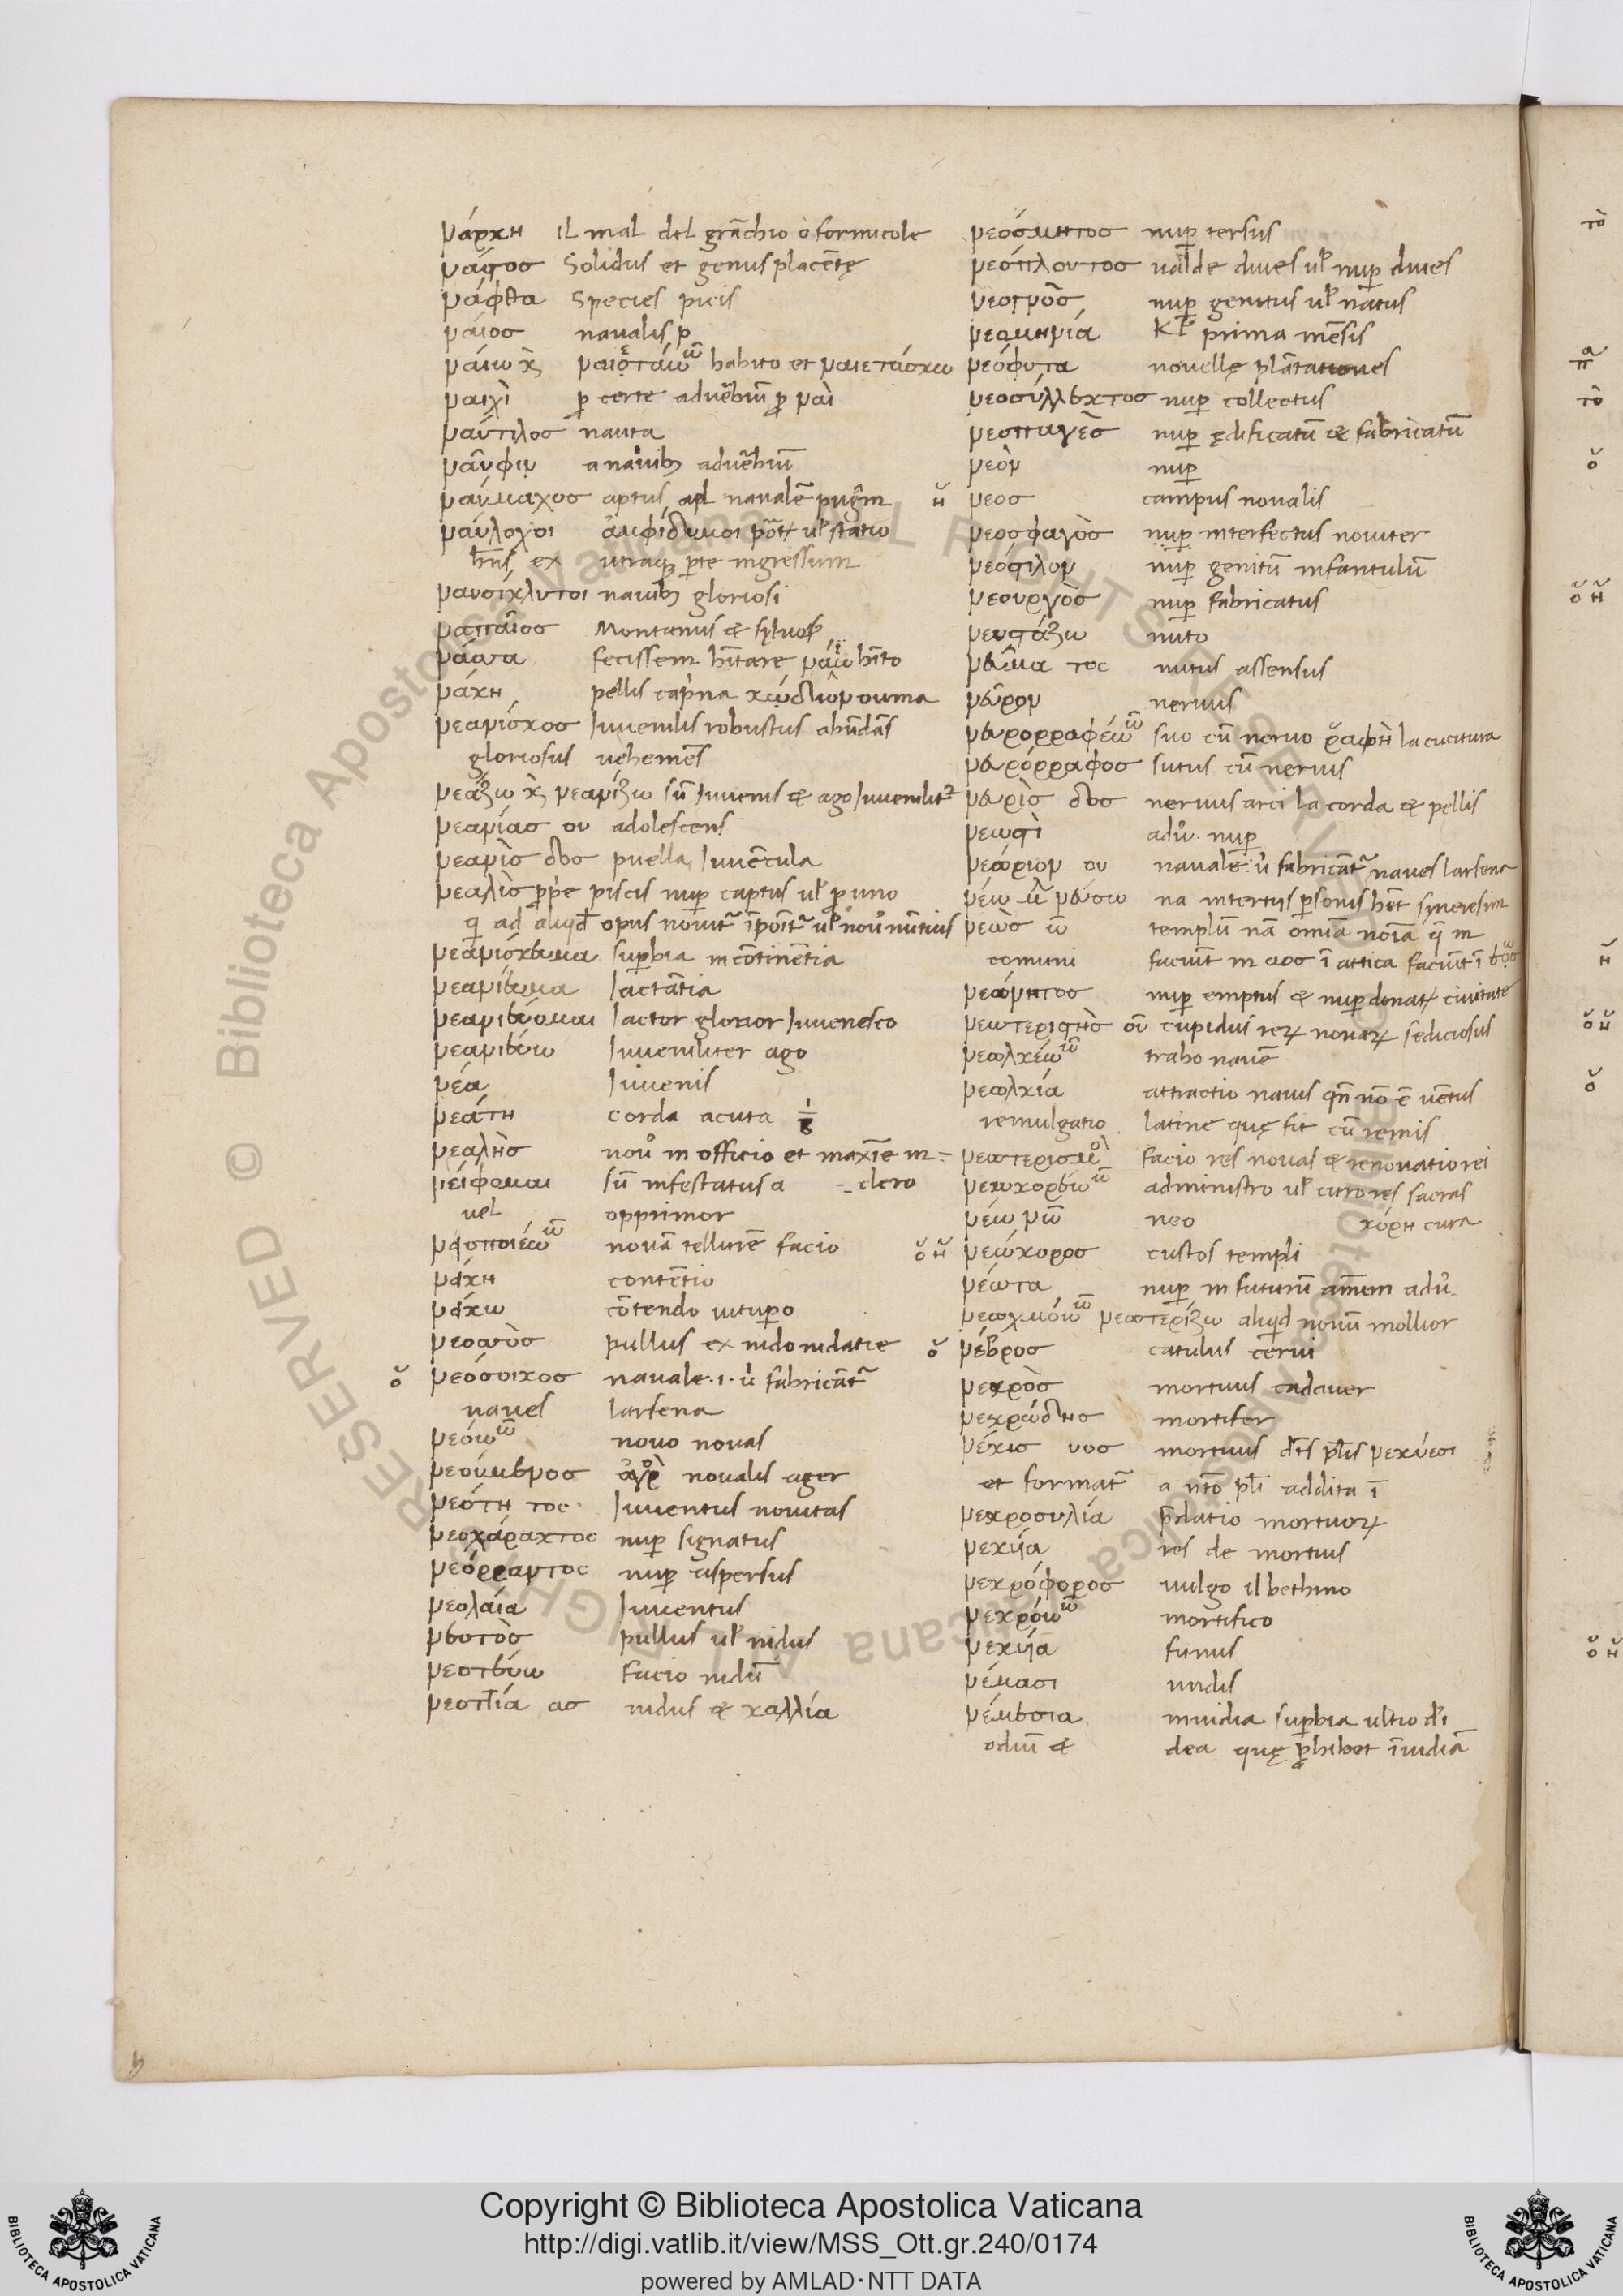 νάρκη il mal del grãchio o formicole
νάστος Solidus et genus placẽtę
νάφθα Species picis
νάιος naualis
νάιω κὶ ναιετάω habito et ναιετάσκω
ναιχὶ certe aduẽbiũ ναὶ
ναύτιλος nauta
ναῦφιν a nauib; aduẽbiũ
ναύμαχος aptus ad naualẽ pugñm
ναύλοχοι ἀμφίδυμοι statio
hñs ex utraq; pte ingressum
ναυσίκλυτοι nauib; gloriosi
ναπαῖος Montanus &
νάσσα fecissem hitare hĩto
νάκη pellis caprina κώδιον ouina
νεανίσκος Iuuenilis robustus abũdãs
gloriosus uehemẽs
νεάζω κὶ νεανίζω sũ Iuuenis & ago Iuuenilitr
νεανίας ου adolescens
νεανὶς δος puella, Iuuẽcula
νεαλὶς ppe piscis nup captus ul' p uno
q ad aliqd opus
νεανίσκευμα supbia incõtinẽtia
νεανίευμα Iactãtia
νεανιεύομαι Iactor glorior Iuuenesco
νεανιεύω Iuueniliter ago
νέα Iuuenis
νεάτη corda acuta
νεαλὴς in officio et maxĩe in
νείφομαι sũ infestatus a clero
uel opprimor
νειοποιέω nouã tellurẽ facio
νείκη contẽtio
νείκω cõtendo uitupo
νεοσσὸς pullus ex nido nidatie
νεόσοικος nauale .i. u fabricãtr
naues larsena
νεόω nouo nouas
νεούμενος noualis ager
νεότη τος Iuuentus nouitas
νεοχάρακτος nup signatus
νεόρραντος nup aspersus
νεολαία Iuuentus
νεοττὸς pullus ul' nidus
νεοττεύω facio nidũ
νεοττία ας nidus & καλλία
νεόσμητος nup tersus
νεόπλουτος ualde diues ul' nup diues
νεογνὸς nup genitus ul' natus
νεομηνία prima mẽsis
νεόφυτα nouellę plãtationes
νεοσύλλεκτος nup collectus
νεοπαγὲς nup ędificatũ & fabricatũ
νεὸν nup
νεος campus noualis
νεοσφαγὸς nup interfectus nouiter
nup genitũ infantulũ
νεουργὸς nup fabricatus
νευστάζω nuto
νεῦμα τος nutus assensus
νεῦρον neruus
νευρορραφέω suo cũ neruo ῥαφὴ la cucitura
νευρόρραφος sutus cũ neruis
νευρὶς δος neruus arci la corda & pellis
νεωστὶ adu. nup
νεώριον ου nauale . u fabricãtr naues larsena
νέω νεύσω na in tertijs psonis hẽt syneresim
νεὼς templũ nã omĩa noĩa q in
comuni faciũt in αος ĩ attica faciũt ĩ
νεώνητος nup emptus & nup donat ciuitate
νεωτεριστὴς οῦ cupidus rerum nouarum sediciosus
νεωλκέω traho nauẽ
νεωλκία attractio nauis qñ nõ ẽ uẽtus
remulgatio latine quę fit cũ remis
facio res nouas & renouatio rei
administro ul' curo res sacras
νέω νῶ neo κόρη cura
νεώκορος custos templi
νέωτα nup in futurũ annum adu
νεωχμόω νεωτερίζω aliqd nouũ mollior
νέβρος catulus cerui
νεκρὸς mortuus cadauer
νεκρώδης mortifer
νέκυς υος mortuus νεκύεσι
et formatr a addita ĩ
νεκροσυλία mortuorum
νεκυία res de mortuis
νεκρόφορος uulgo il bechino
νεκρόω mortifico
νεκυία funus
νέμασι undis
νέμεσια inuidia supbia ultio
odiũ & dea quę phibet ĩuidiã
Copyright © Biblioteca Apostolica Vaticana
http://digi.vatlib.it/view/MSS_Ott.gr.240/0174
powered by AMLAD·NTT DATA